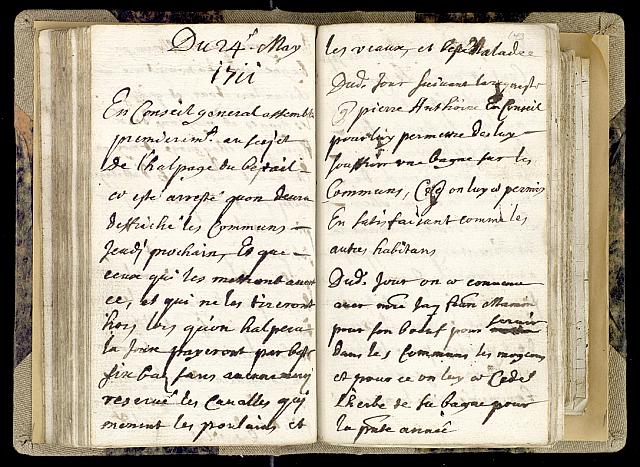 Du 24e May
1711
En Conseil general assemble
premierimt. au sujet
De lhalpage du bestail
a esté arresté quon deura
deffriché les Communs
Jeudj prochain, Et que
ceux qui les mettront auant
ce, et qui ne les tireront
hors lors quon halpera
la Joux payeront par beste
six bas sans aucune mercy
reserué les Caualles qui
menent les poulains et
les veaux, et bestes Malades
Dud. Jour suiuant la requeste
pierre Anthoine En Conseil
pour luy permettre de luy
souffrir une bague sur les
Communs, on luy a permis
En satisfaisant comme les
autres habitans
Dud. Jour on a conuenu
auec Jaq
pour son boeuf pour seruir
dans les Communs les moyens
et pour ce on luy a Cedé
Lherbe de sa bague pour
la pnte année